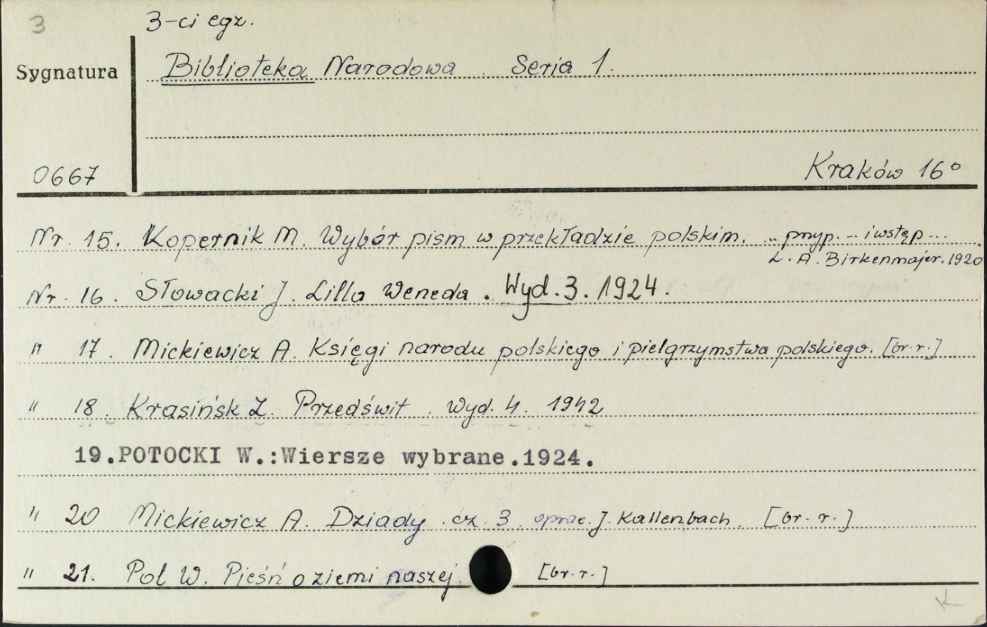 3
3-ci egz.
Sygnatura
Biblioteka Narodowa. Seria 1.
0667
Kraków 16°
Nr. 15. Kopernik M. Wybór pism w przekładzie polskim. .. przyp. .. i wstęp ...
L. A. Birkenmajer. 1920
Nr. 16. Słowacki J. Lilla Weneda. Wyd. 3. 1924.
" 17. Mickiewicz A. Księgi narodu polskiego i pielgrzymstwa polskiego. [br. r.]
" 18. Krasińsk Z. Przedświt. Wyd. 4. 1942
19.POTOCKI W.:Wiersze wybrane.1924.
" 20 Mickiewicz A. Dziady. cz. 3. oprac. J. Kallenbach. [br. r.]
" 21. Pol W. Pieśń o ziemi naszej. [br. r.]
K